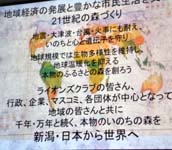 地域経済の発展と豊かな市民生活を支
21世紀の森づくり
地震・大津波・台風・火事にも耐え、
いのちと心と遺伝子を守り
地球規模では生物多様性を維持し、
地球温暖化を抑える
本物のふるさとの森を創ろう
ライオンズクラブの皆さん、
行政、企業、マスコミ、各団体が中心となって
地域の皆さんと共に
千年・万年と続く、本物のいのちの森を
新潟・日本から世界へ